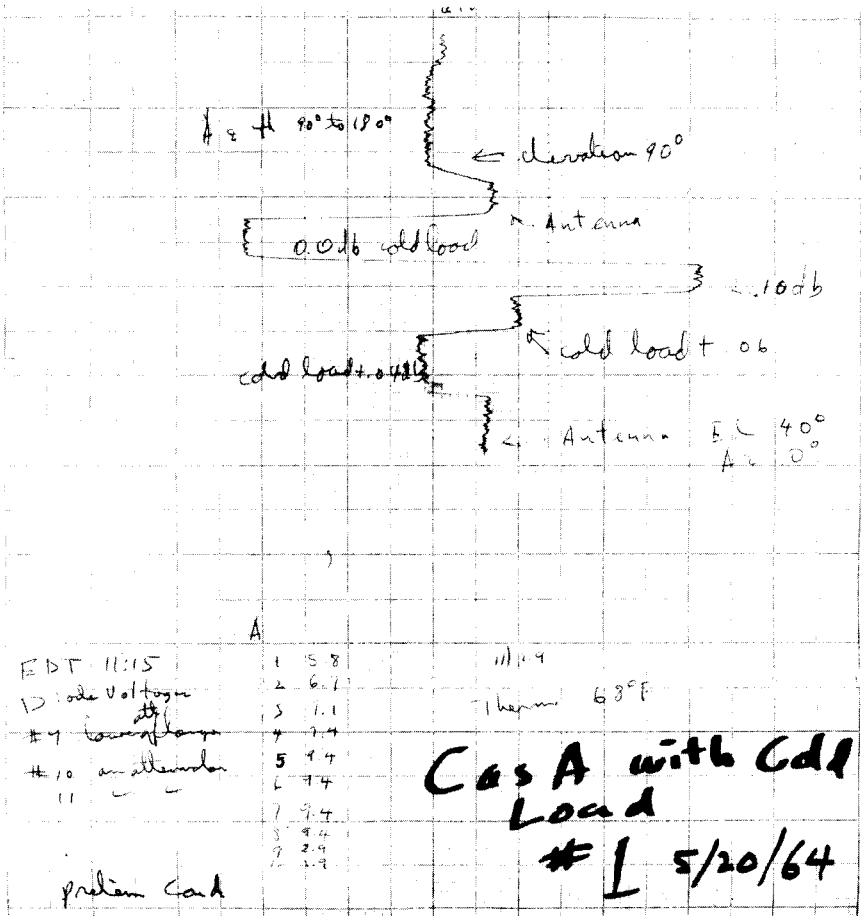 Az 90° to 180°
← elevation 90°
Antenna
0.0 db cold load
.10 db
cold load + .06
cold load + .04 db
← Antenna El 40°
Az 0°
A
EDT 11:15
Diode Voltages
#9
#10 on attenuator
11
1 5.8
2 6.7
3 1.1
4 9.4
5 9.4
6 9.4
7 9.4
8 9.4
9 2.9
Therm 68°F
Cas A with Cold
Load
#1 5/20/64